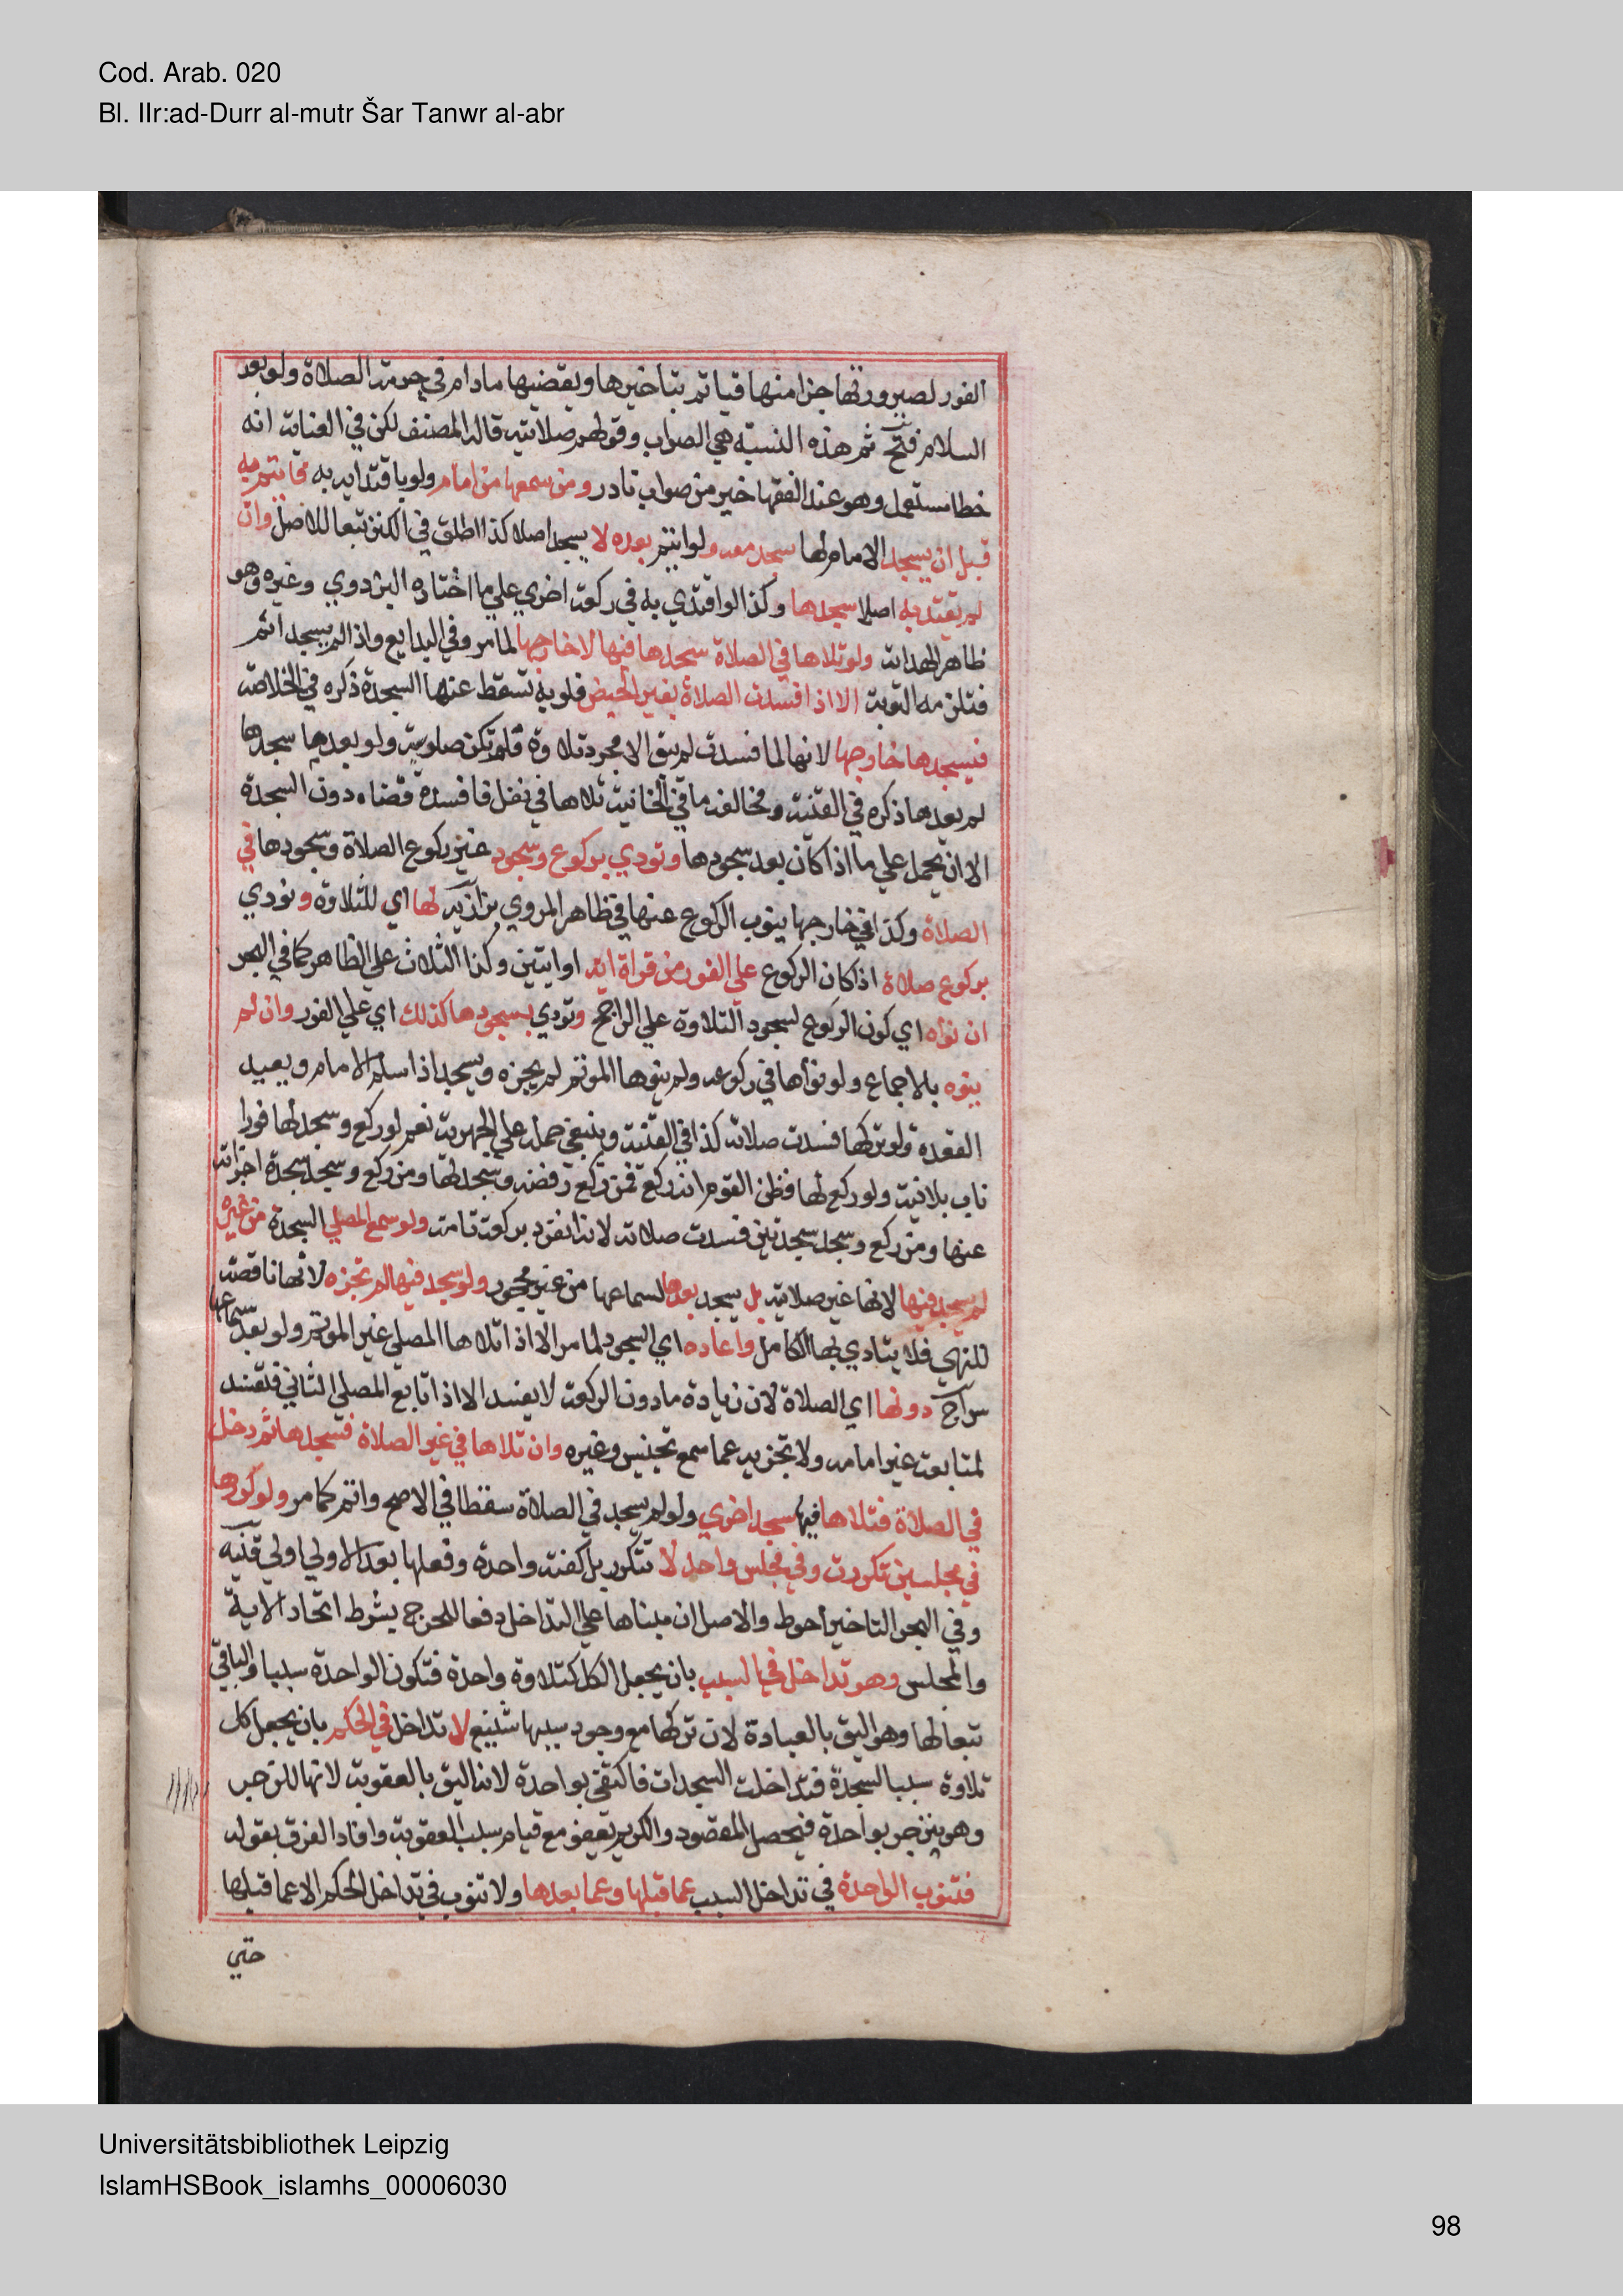 Cod. Arab. 020
Bl. IIr:ad-Durr al-mutr Šar Tanwr al-abr
الفور لصيرورتها جزا منها فياثم بتاخيرها ويقضيها مادام في حرمة الصلاة ولو بعد
السلام فتح ثم هذه النسبة هي الصواب وقولهم صلاتية قاله المصنف لكن في العناية انه
خطا مستعمل وهو عند الفقها خير من صواب نادر ومن سمعها من امام ولو باقتدايه به فائتم به
قبل ان يسجد الامام لها سجد معه ولو ائتم بعده لا يسجد اصلا كذا اطلق في الكنز تبعا للاصل وان
لم يقتد به اصلا سجدها وكذا لو اقتدي به في ركعة اخري علي ما اختاره البزدوي وغيره وهو
ظاهر الهداية ولو تلاها في الصلاة سجدها فيها لا خارجها لما مر وفي البدايع واذا لم يسجد اثم
فتلزمه التوبة الا اذا فسدت الصلاة بغير الحيض فلو به تسقط عنها السجدة ذكره في الخلاصة
فيسجدها خارجها لانها لما فسدت لم يبق الا مجرد تلاوة فلم تكن صلوية ولو بعدما سجدها
لم يعدها ذكره في القنية ويخالفه ما في الخانية تلاها في نفل فافسده قضاه دون السجدة
الا ان يحمل علي ما اذا كان بعد سجودها وتودي بركوع وسجود غير ركوع الصلاة وسجودها في
الصلاة وكذا في خارجها ينوب الركوع عنها في ظاهر المروي بزازية لها اي للتلاوة وتودي
بركوع صلاة اذا كان الركوع علي الفور من قراة اية او ايتين وكذا الثلاث علي الظاهر كما في البحر
ان نواه اي كون الركوع لسجود التلاوة علي الراجح وتودي بسجودها كذلك اي علي الفور وان لم
ينوه بالاجماع ولو نواها في ركوعه ولم ينوها الموتم لم يجزه ويسجد اذا سلم الامام ويعيد
القعدة ولو تركها فسدت صلاته كذا في القنية وينبغي حمله علي الجهرية نعم لو ركع وسجد لها فورا
ناب بلا نية ولو ركع لها فظن القوم انه ركع فمن ركع رفضه وسجد لها ومن ركع وسجد سجدة اجزاته
عنها ومن ركع وسجد سجدتين فسدت صلاته لانه انفرد بركعة تامة ولو سمع المصلي السجدة من غيره
لم يسجد فيها لانها غير صلاتية بل يسجد بعدها لسماعها من غير محجور ولو سجد فيها لم تجزه لانها ناقصة
للنهي فلا يتادي بها الكامل واعاده اي السجود لما مر الا اذا تلاها المصلي غير الموتم ولو بعد سماعها
سراج دونها اي الصلاة لان زيادة ما دون الركعة لا يفسد الا اذا تابع المصلي التالي فتفسد
لمتابعته غير امامه ولا تجزيه عما سمع تجنيس وغيره وان تلاها في غير الصلاة فسجدها ثم دخل
في الصلاة فتلاها فيها سجد اخري ولو لم يسجد في الصلاة سقطا في الاصح واثم كما مر ولو كررها
في مجلسين تكررت وفي مجلس واحد لا تتكرر بل كفته واحدة وفعلها بعد الاولي اولي قنية
وفي البحر التاخير احوط والاصل ان مبناها علي التداخل دفعا للحرج بشرط اتحاد الاية
والمجلس وهو تداخل في السبب بان يجعل الكل كتلاوة واحدة فتكون الواحدة سببا والباقي
تبعا لها وهو اليق بالعبادة لان تركها مع وجود سببها شنيع لا تداخل في الحكم بان يجعل كل
تلاوة سببا لسجدة فتداخلت السجدات فاكتفي بواحدة لانه اليق بالعقوبة لانها للزجر
وهو ينزجر بواحدة فيحصل المقصود والكريم يعفو مع قيام سبب العقوبة وافاد الفرق بقوله
فتنوب الواحدة في تداخل السبب عما قبلها وعما بعدها ولا تنوب في تداخل الحكم الا عما قبلها
حتي
Universitätsbibliothek Leipzig
IslamHSBook_islamhs_00006030
98